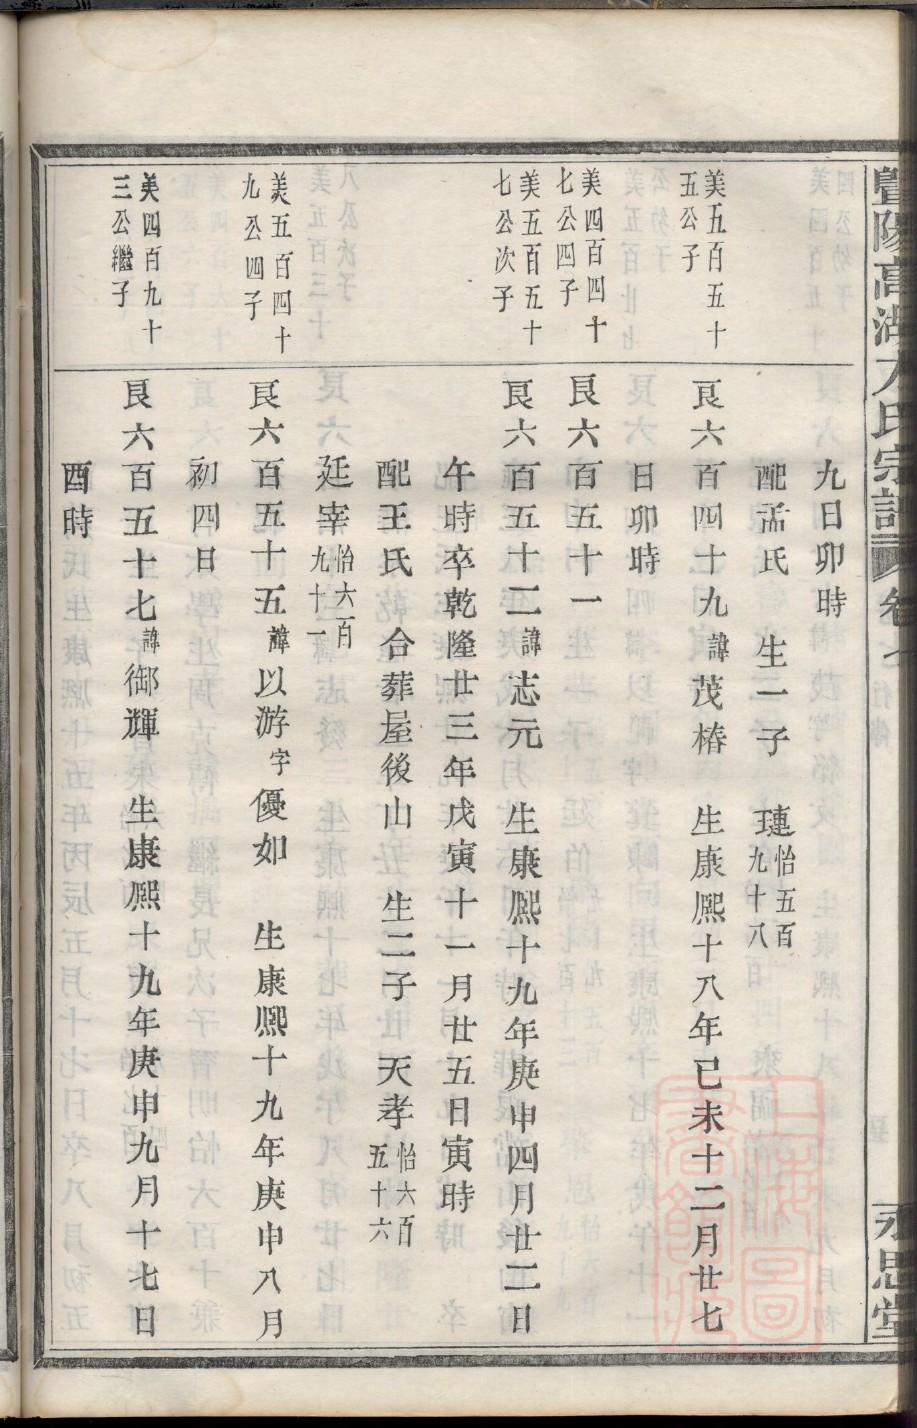 暨陽高湖方氏宗譜 卷七 永思堂
九日卯時
配孟氏 生一子 璉怡五百九十八
美五百五十五公子
艮六百四十九諱茂椿 生康熙十八年已未十二月廿七
日卯時
美四百四十七公四子
艮六百五十一
美五百五十七公次子
艮六百五十二諱志元 生康熙十九年庚申四月廿二日
午時卒乾隆廿三年戊寅十一月廿五日寅時
配王氏 合葬屋後山 生二子 天孝怡六百五十六
廷宰怡六百九十一
美五百四十九公四子
艮六百五十五諱以游字優如 生康熙十九年庚申八月
初四日
美四百九十三公繼子
艮六百五十七諱御輝 生康熙十九年庚申九月十七日
酉時